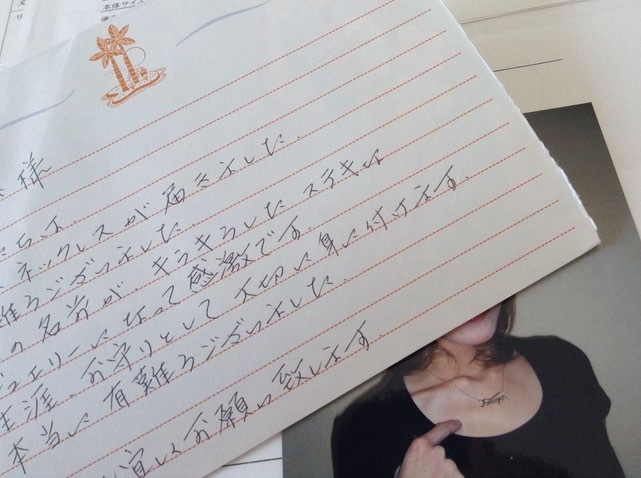 本体サイズ
様
ネックレスが届きました.
難うございました.
の名前が、キラキラしたステキな
ジュエリーになって感激です.
生涯、お守りとして大切に身に付けます.
本当に有難うございました.
宜しくお願い致します.